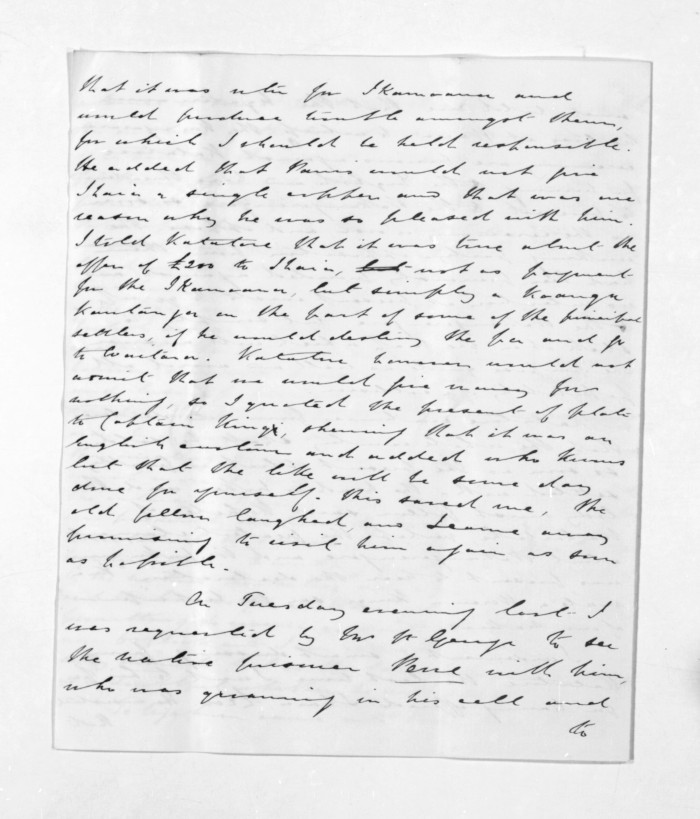 that it was utu for Ikamoana and
would produce trouble amongst them,
for which I should be held responsible.
He added that would not give
Ihaia a single copper and that was one
reason why he was so pleased with him.
I told Katatore that it was true about the
offer of £200 to Ihaia, but not as payment
for the Ikamoana, but simply a
on the part of some of the principal
settlers, if he would destroy the pa and go
to Waitara. Katatore however would not
admit that we would give money for
nothing, so I quoted the present of plate
to Captain King, shewing that it was an
English custom and added who knows
but that the like will be some day
done for yourself. This saved me, the
old fellow laughed, and I came away
promising to visit him again as soon
as possible.
On Tuesday evening last I
was requested by Mr St George to see
the native prisoner with him,
who was groaning in his cell and
to